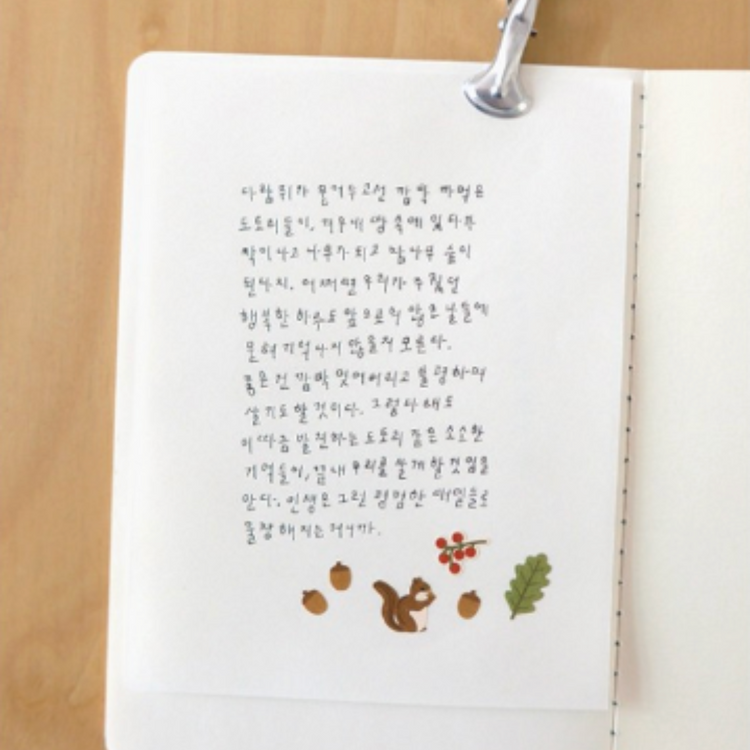 다람쥐가 묻어두고선 깜빡 까먹은
도토리들이, 겨우내 땅 속에 있다가
싹이 나고 나무가 되고 참나무 숲이
된다지. 어쩌면 우리가 주웠던
행복한 하루도 앞으로의 많은 날들에
묻혀 기억나지 않을지 모른다.
좋은 건 깜빡 잊어버리고 불평하며
살기도 할 것이다. 그렇다 해도
이따금 발견하는 도토리 같은 소소한
기억들이, 끝내 우리를 살게 할 것임을
안다. 인생은 그런 평범한 매일들로
울창해지는 거니까.